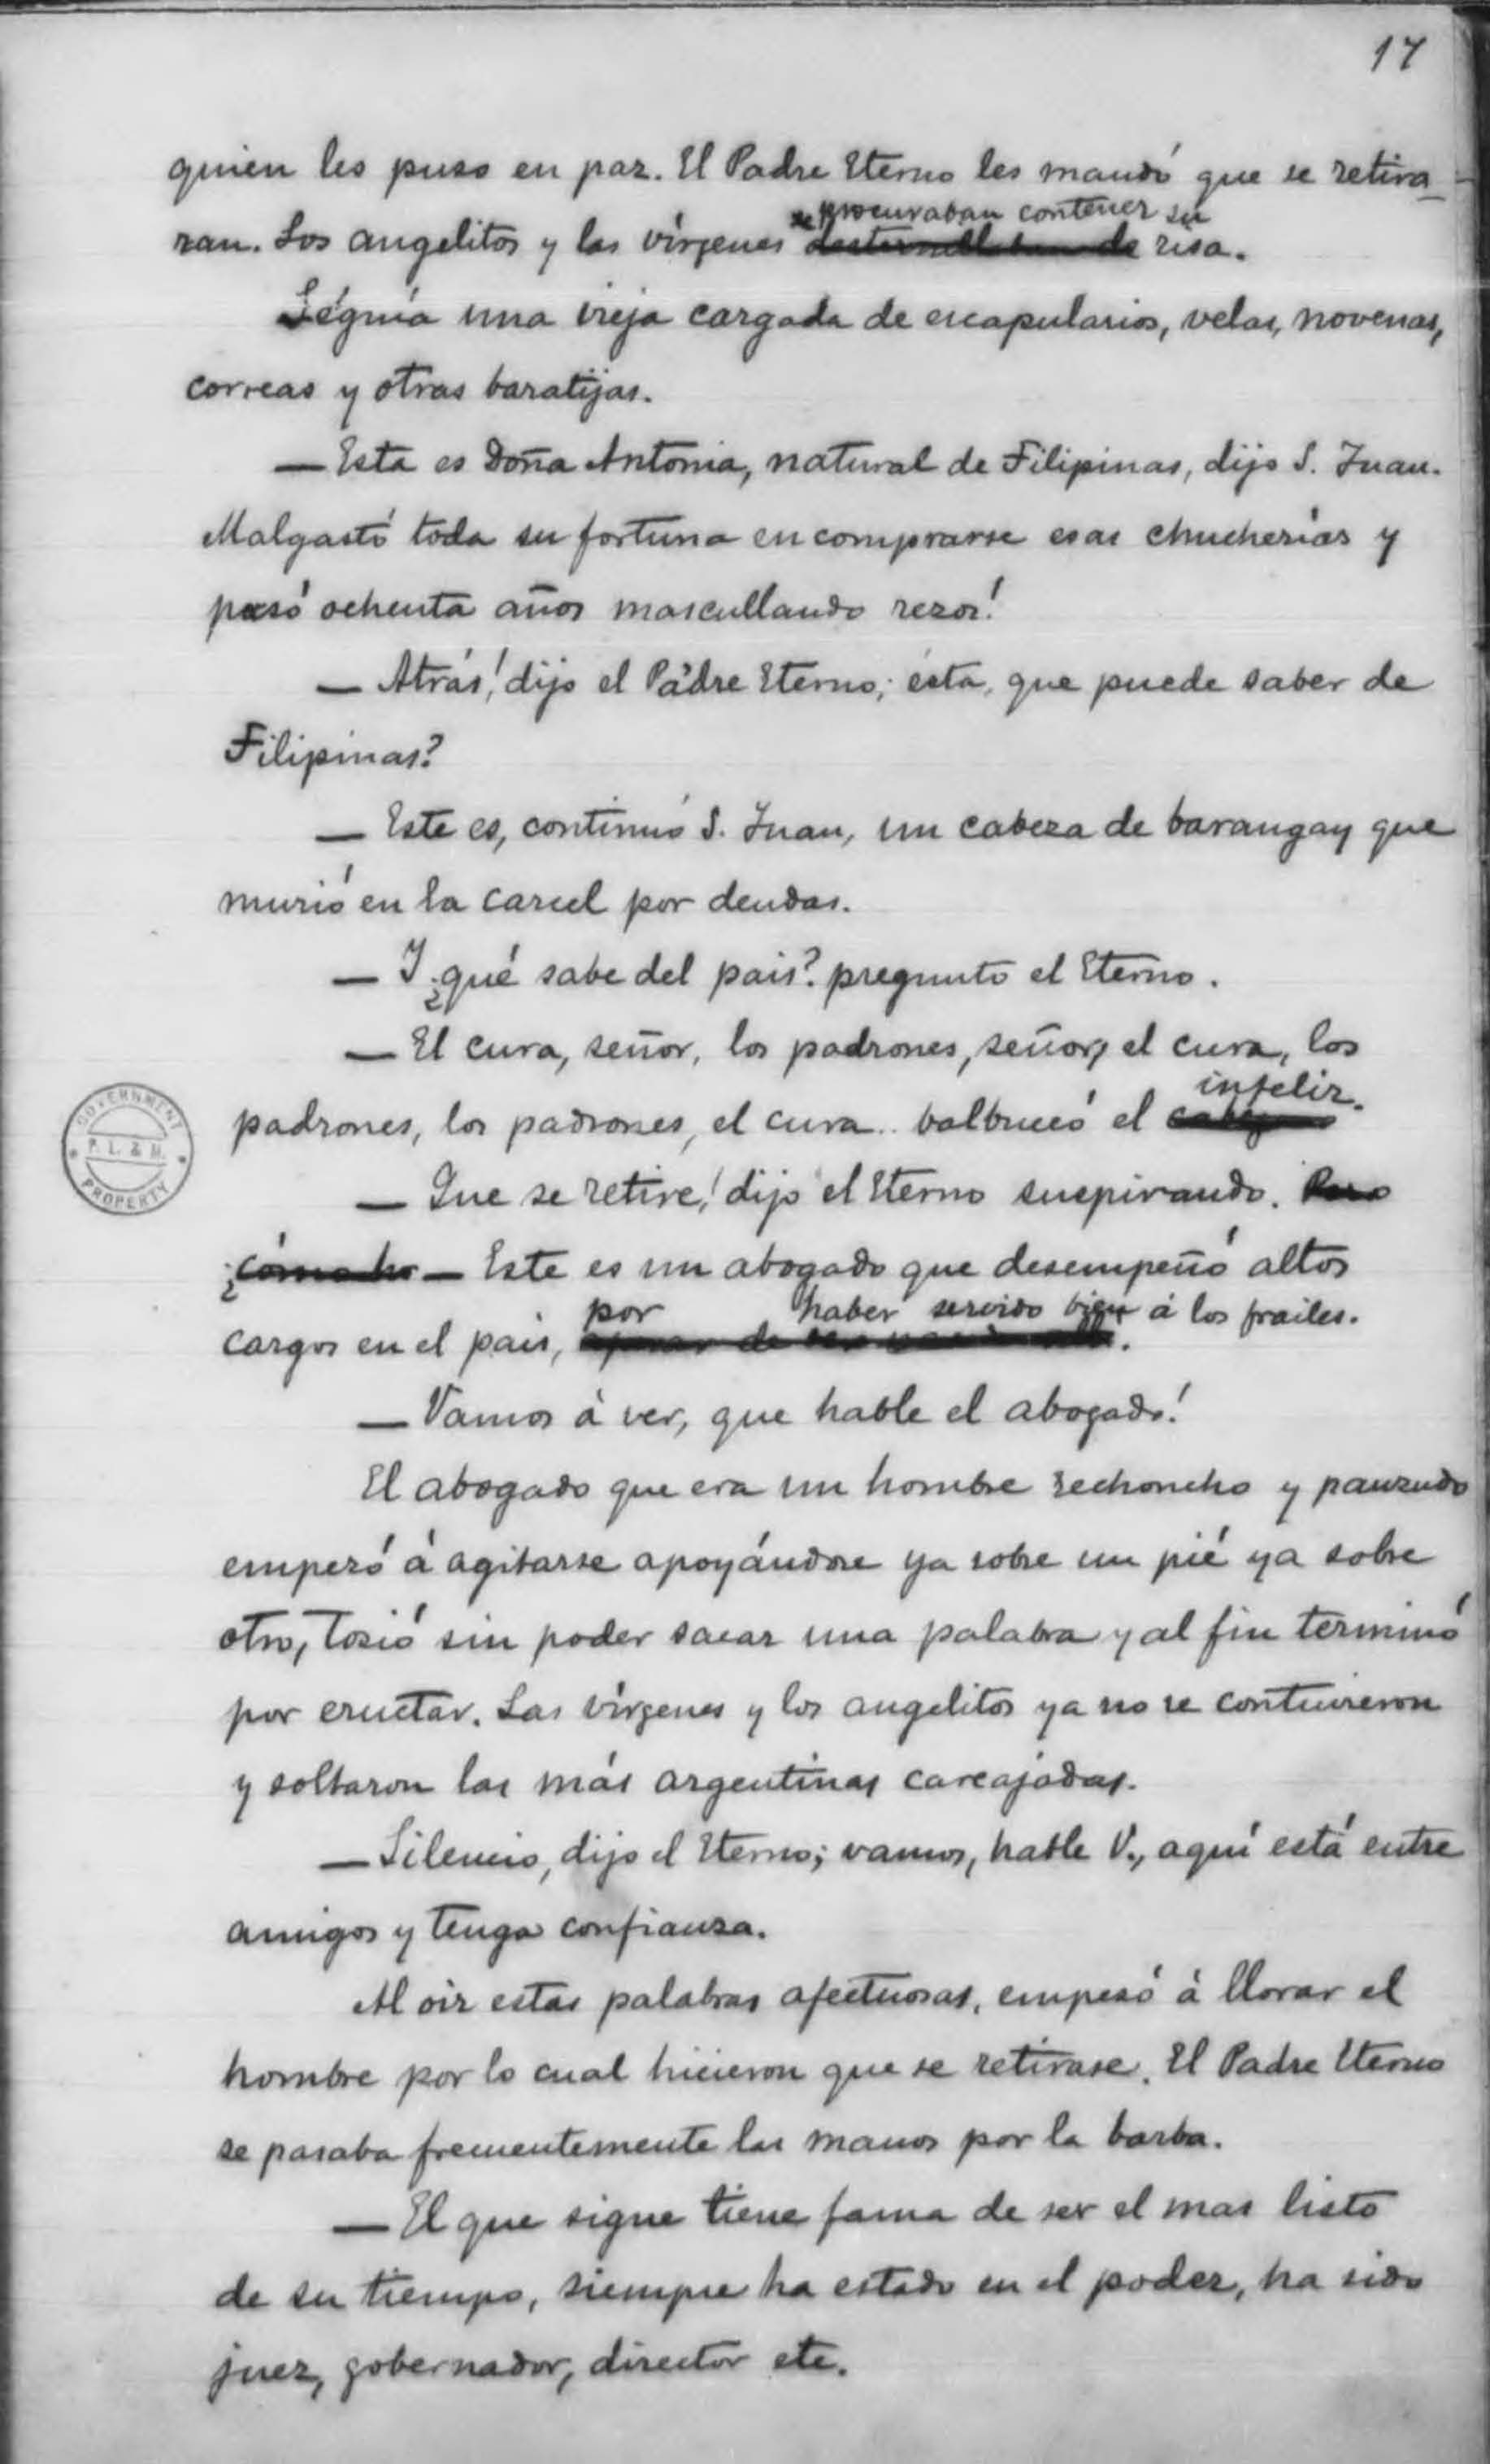 17
quien les puso en paz. El Padre Eterno les mandó que se retira-
procuraban contener su
ran. Los angelitos y las vírgenes se desternillaban de risa.
Seguía una vieja cargada de escapularios, velas, novenas,
correas y otras baratijas.
— Esta es Doña Antonia, natural de Filipinas, dijo S. Juan.
Malgastó toda su fortuna en comprarse esas chucherías y
pasó ochenta años mascullando rezos!
— Atrás! dijo el Padre Eterno; ésta, que puede saber de
Filipinas?
— Este es, continuó S. Juan, un cabeza de barangay que
murió en la carcel por deudas.
— Y ¿qué sabe del pais? pregunto el Eterno.
— El cura, señor, los padrones, señor, el cura, los
infeliz.
padrones, los padrones, el cura.. balbuceó el
GOVERNMENT
P. L. & M.
PROPERTY
— Que se retire! dijo el Eterno suspirando. Pero
¿cómo ha — Este es un abogado que desempeñó altos
por haber servido bien á los frailes.
cargos en el pais,
— Vamos á ver, que hable el abogado!
El abogado que era un hombre rechoncho y panzudo
empezó á agitarse apoyándose ya sobre un pié ya sobre
otro, tosió sin poder sacar una palabra y al fin terminó
por eructar. Las vírgenes y los angelitos ya no se contuvieron
y soltaron las más argentinas carcajadas.
— Silencio, dijo el Eterno; vamos, hable V., aquí está entre
amigos y tenga confianza.
Al oir estas palabras afectuosas, empezó á llorar el
hombre por lo cual hicieron que se retirase. El Padre Eterno
se pasaba frecuentemente las manos por la barba.
— El que sigue tiene fama de ser el mas listo
de su tiempo, siempre ha estado en el poder, ha sido
juez, gobernador, director etc.